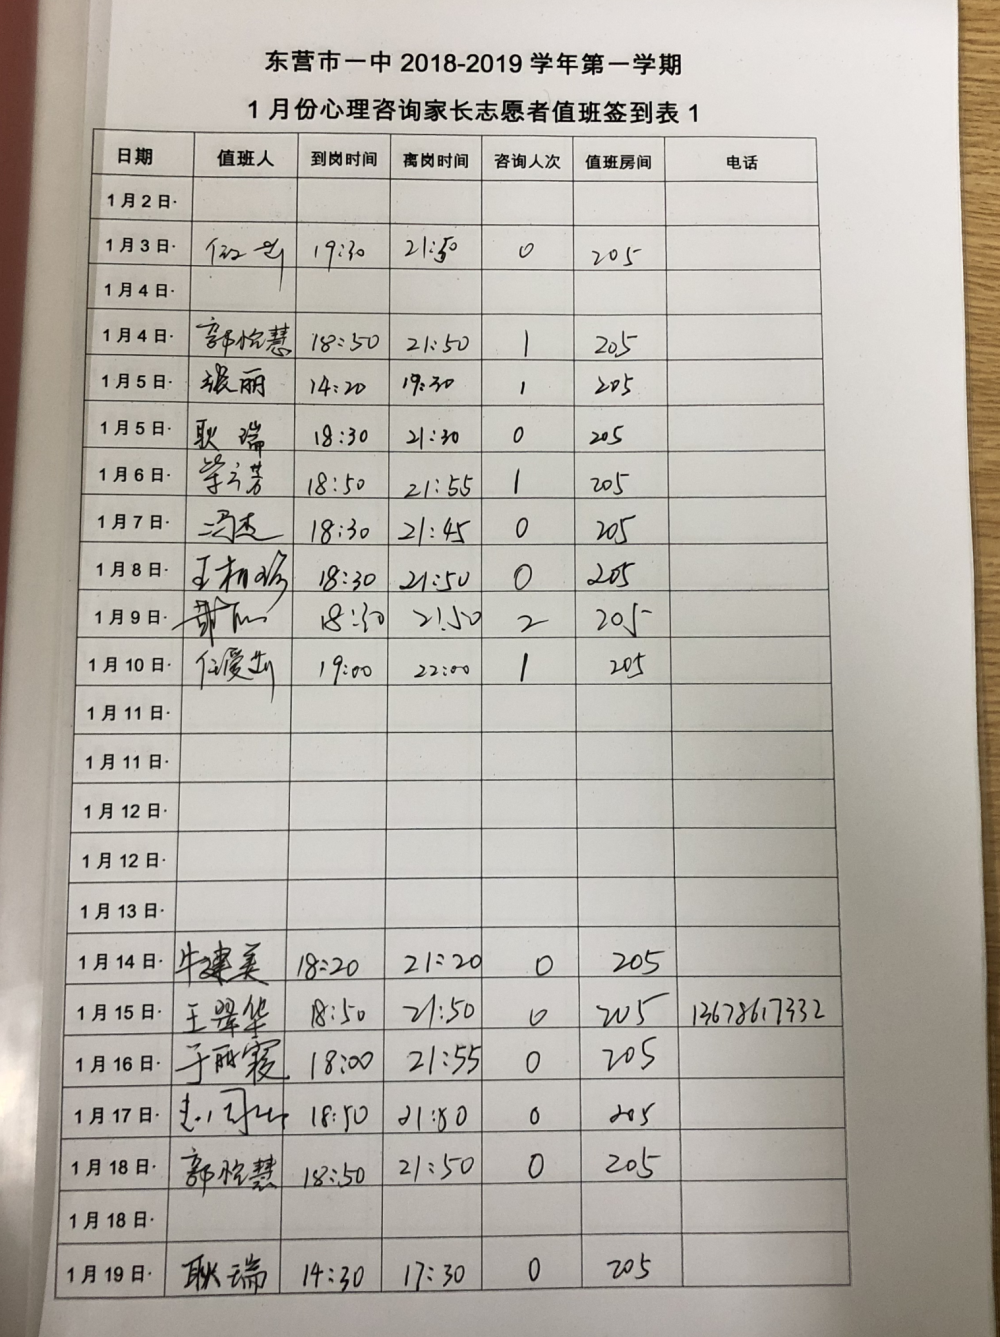 东营市一中 2018-2019 学年第一学期
1 月份心理咨询家长志愿者值班签到表 1
日期 值班人 到岗时间 离岗时间 咨询人次 值班房间 电话
1 月 2 日·
1 月 3 日· 19:30 21:50 0 205
1 月 4 日·
1 月 4 日· 郭悦慧 18:50 21:50 1 205
1 月 5 日· 张丽 14:20 19:30 1 205
1 月 5 日· 耿瑞 18:30 21:30 0 205
1 月 6 日· 18:50 21:55 1 205
1 月 7 日· 冯杰 18:30 21:45 0 205
1 月 8 日· 18:30 21:50 0 205
1 月 9 日· 18:30 21:50 2 205
1 月 10 日· 任爱莉 19:00 22:00 1 205
1 月 11 日·
1 月 11 日·
1 月 12 日·
1 月 12 日·
1 月 13 日·
1 月 14 日· 牛建美 18:20 21:20 0 205
1 月 15 日· 王翠华 18:50 21:50 0 205 13678617332
1 月 16 日· 于丽霞 18:00 21:55 0 205
1 月 17 日· 18:50 21:50 0 205
1 月 18 日· 郭悦慧 18:50 21:50 0 205
1 月 18 日·
1 月 19 日· 耿瑞 14:30 17:30 0 205